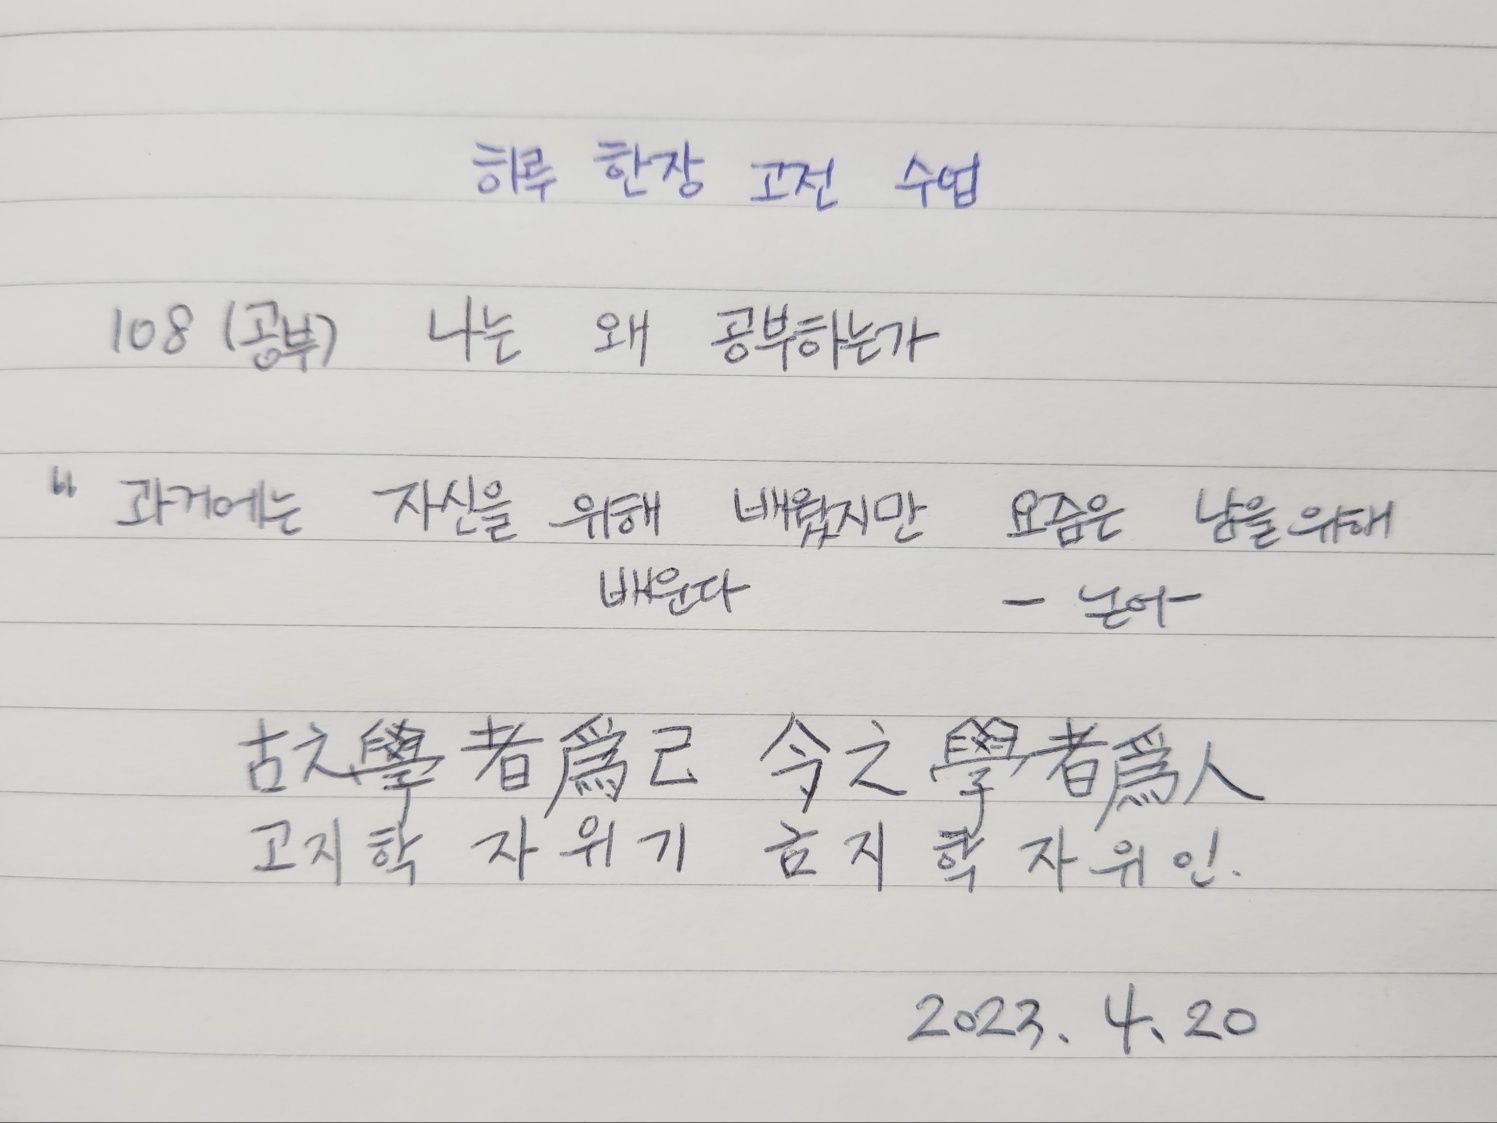 하루 한장 고전 수업
108 (공부) 나는 왜 공부하는가
" 과거에는 자신을 위해 배웠지만 요즘은 남을 위해
배운다 - 논어 -
古之學者爲己 今之學者爲人
고지학자위기 금지학자위인.
2023. 4. 20